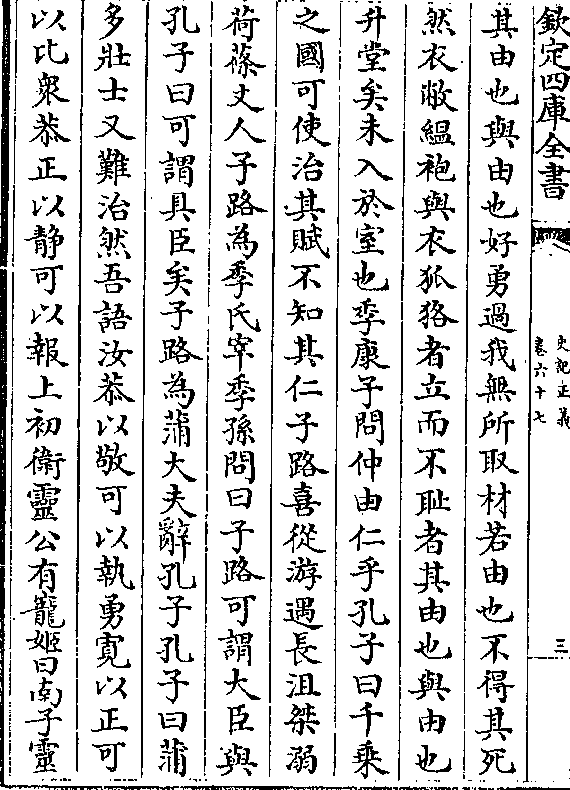 欽定四庫全書
史記正義
卷六十七
三
其由也與由也好勇過我無所取材若由也不得其死
然衣敝縕袍與衣狐狢者立而不恥者其由也與由也
升堂矣未入於室也季康子問仲由仁乎孔子曰千乘
之國可使治其賦不知其仁子路喜從游遇長沮桀溺
荷蓧丈人子路為季氏宰季孫問曰子路可謂大臣與
孔子曰可謂具臣矣子路為蒲大夫辭孔子孔子曰蒲
多壯士又難治然吾語汝恭以敬可以執勇寛以正可
以比衆恭正以静可以報上初衛靈公有寵姬曰南子靈